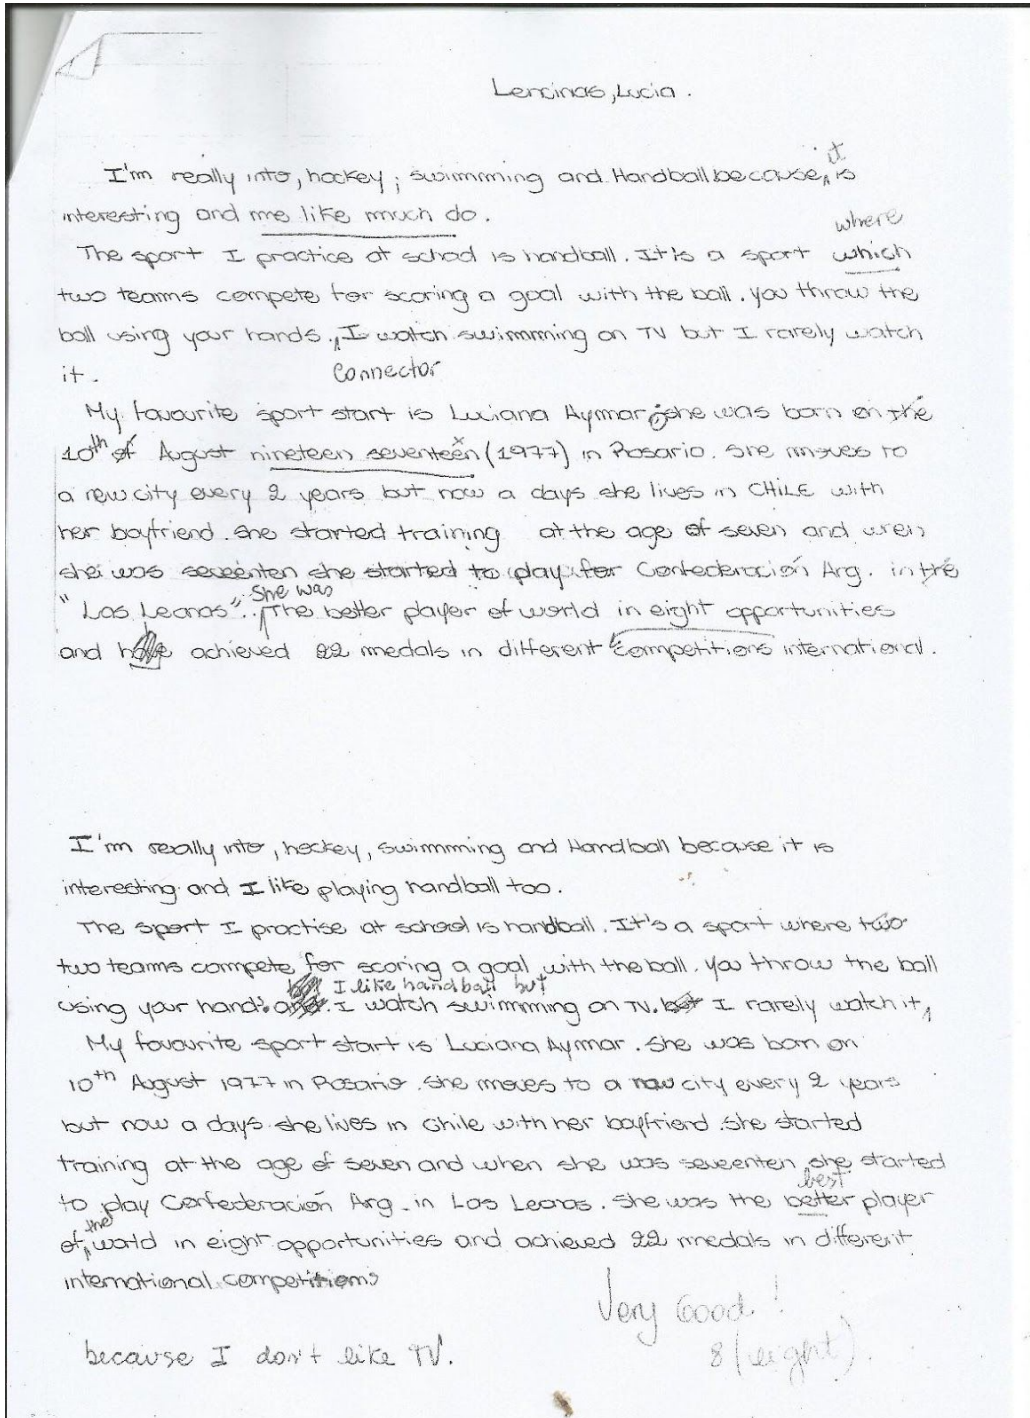 Lencinas, Lucia.
it
I'm really into, hockey, swimmming and Handball because, is
interesting and me like much do.
where
The sport I practice at school is handball. It is a sport which
two teams compete for scoring a goal with the ball. You throw the
ball using your hands. I watch swimmming on TV but I rarely watch
it.
Connector
My favourite sport start is Luciana Aymar, she was born on the
10th of August nineteen seventeen (1977) in Rosario. She moves to
a new city every 2 years but now a days she lives in CHiLE with
her boyfriend. She started training at the age of seven and when
she was seveenten she started to play for Confederación Arg. in the
"Las Leonas". She was
The better player of world in eight opportunities
and have achieved 22 medals in different competitions international.
I'm really into, hockey, swimmming and Handball because it is
interesting and I like playing handball too.
The sport I practise at school is handball. It's a sport where two
two teams compete for scoring a goal with the ball. You throw the ball
I like handball but
using your hand. and. I watch swimmming on TV. but I rarely watch it,
My favourite sport start is Luciana Aymar. She was born on
10th August 1977 in Rosario. She moves to a new city every 2 years
but now a days she lives in Chile with her boyfriend. She started
training at the age of seven and when she was seveenten she started
best
to play Confederación Arg. in Las Leonas. She was the better player
the
of world in eight opportunities and achieved 22 medals in different
international competitions
Very Good!
because I don't like TV.
8 (eight).